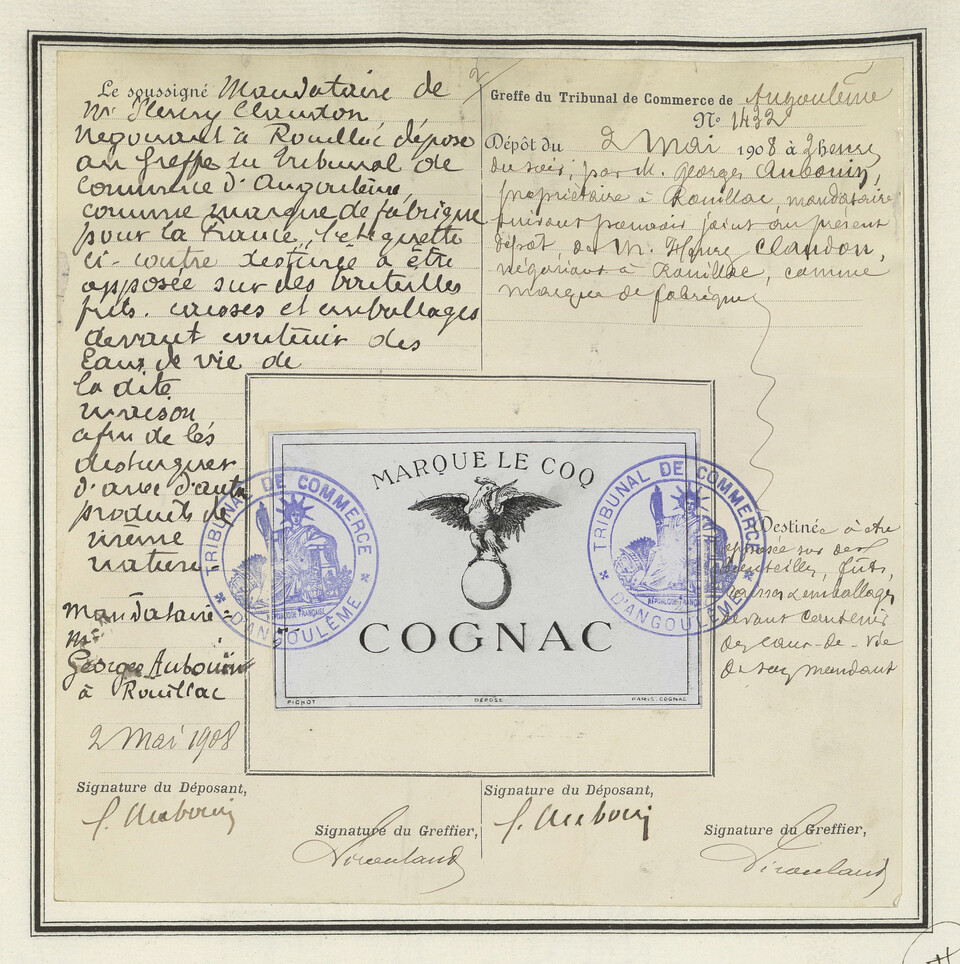 Le soussigné Mandataire de
Mr Henry Claudon,
Négociant à Rouillac dépose
au Greffe du Tribunal de
Commerce d'Angoulême,
comme marque de fabrique
pour la France, l'étiquette
ci-contre destinée à être
apposée sur des bouteilles
futs. caisses et emballages
devant contenir des
Eaux de vie de
la dite
maison
afin de les
distinguer
d'avec d'autres
produits de
même
nature
Mandataire =
Mr
Georges Aubouin
à Rouillac
2 Mai 1908
Signature du Déposant,
G. Aubouin
Signature du Greffier,
2
Greffe du Tribunal de Commerce de Angoulême
No 1432
Dépôt du 2 Mai 1908 à 2 heures
du soir, par M. Georges Aubouin,
propriétaire à Rouillac, mandataire
suivant pouvoir joint au présent
dépôt, de M. Henry Claudon,
négociant à Rouillac, comme
marque de fabrique
MARQUE LE COQ
COGNAC
PICHOT DÉPOSÉ PARIS. COGNAC
TRIBUNAL DE COMMERCE
D'ANGOULÊME
RÉPUBLIQUE FRANÇAISE
TRIBUNAL DE COMMERCE
D'ANGOULÊME
RÉPUBLIQUE FRANÇAISE
Destinée à être
apposée sur des
bouteilles, fûts,
caisses & emballages
devant contenir
des eaux-de-vie
de son mandant
Signature du Déposant,
G. Aubouin
Signature du Greffier,